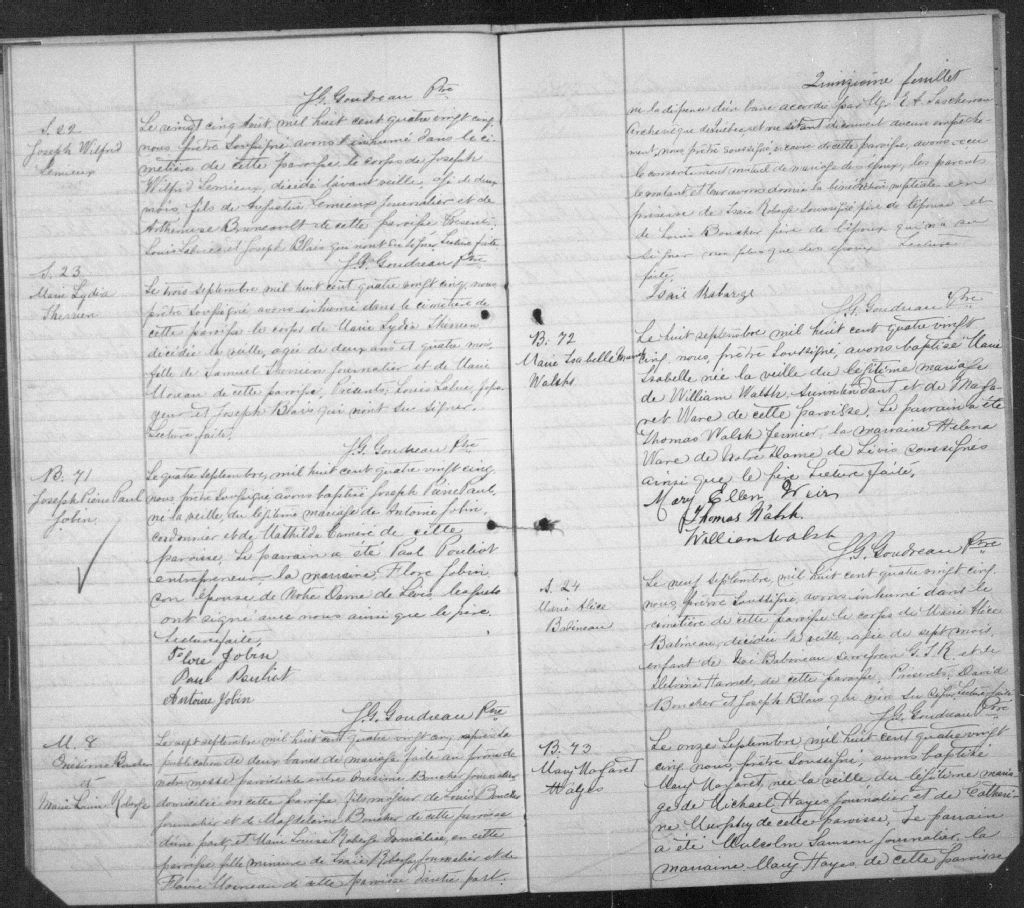 J.G. Goudreau Ptre
S. 22
Joseph Wilfrid
Lemieux
Le vingt cinq Aout, mil huit cent quatre vingt cinq
nous prêtre soussigné avons inhumé dans le ci-
metière de cette paroisse le corps de Joseph
Wilfrid Lemieux, décédé l'avant veille, agé de deux
mois, fils de Augustin Lemieux journalier et de
Arthémise Bruneault de cette paroisse Présents
Louis Labrie et Joseph Blais qui n'ont su signer Lecture faite
J.G. Goudreau Ptre
S. 23
Marie Lydia
Therrien
Le trois septembre mil huit cent quatre vingt cinq, nous
prêtre soussigné avons inhumé dans le cimetière de
cette paroisse le corps de Marie Lydia Therrien
décédée la veille, agée de deux ans et quatre mois,
fille de Samuel Therrien journalier et de Marie
Moreau de cette paroisse, Présents: Louis Labrie,
et Joseph Blais qui n'ont su signer.
Lecture faite.
J.G. Goudreau Ptre
B. 71
Joseph Pierre Paul
Jobin
Le quatre septembre, mil huit cent quatre vingt cinq,
nous prêtre soussigné, avons baptisé Joseph Pierre Paul,
né la veille, du légitime mariage de Antoine Jobin,
cordonnier et de Mathilda Lamiré de cette
paroisse. Le parrain a été Paul Pouliot
entrepreneur la marraine, Flore Jobin
son épouse de Notre Dame de Lévis, lesquels
ont signé avec nous ainsi que le père
Lecture faite.
Flore Jobin
Paul Pouliot
Antoine Jobin
J.G. Goudreau Ptre
M. 8
Onésime Boucher
et
Marie Louise Roberge
Le sept septembre mil huit cent quatre vingt cinq après la
publication de deux bancs de mariage faite au prône de
notre messe paroissiale entre Onésime Boucher journalier
domicilié en cette paroisse fils majeur de Louis Boucher
journalier et de Magdeleine Boucher de cette paroisse
d'une part, et Marie Louise Roberge domiciliée en cette
paroisse, fille mineure de Isaïe Roberge journalier et de
Flavie Moineau de cette paroisse d'autre part.
Quinzième feuillet
vu la dispense d'un banc accordée par Mgr E A Taschereau
Archevêque de Québec et ne s'étant découvert aucun empêche-
ment, nous prêtre soussigné, de cette paroisse, avons reçu
le consentement mutuel de mariage des époux, les parents
le voulant et leur avons donné la bénédiction nuptiale en
présence de Isaïe Roberge soussigné père de l'épouse et
de Louis Boucher père de l'époux qui n'a su
signer non plus que les époux Lecture
faite.
Isaïe Roberge
J.G. Goudreau Ptre
B. 72
Marie Isabelle
Walsh
Le huit septembre mil huit cent quatre vingt
cinq, nous, prêtre soussigné, avons baptisé Marie
Isabelle née la veille du légitime mariage
de William Walsh, surintendant, et de Marga
ret Ware de cette paroisse. Le parrain a été
Thomas Walsh fermier, la marraine Helena
Ware de Notre Dame de Lévis soussignés
ainsi que le père Lecture faite.
Mary Ellen Weir
Thomas Walsh
William Walsh
J.G. Goudreau Ptre
S. 24
Marie Alice
Babineau
Le neuf septembre, mil huit cent quatre vingt cinq
nous, prêtre soussigné, avons inhumé dans le
cimetière de cette paroisse le corps de Marie Alice
Babineau, décédée la veille, agée de sept mois,
enfant de Noé Babineau serrefrein G.T.R. et de
Hamel, de cette paroisse. Présents: David
Boucher et Joseph Blais qui n'ont su signer, Lecture faite
J.G. Goudreau Ptre
B. 73
Mary Margaret
Hayes
Le onze septembre, mil huit cent quatre vingt
cinq, nous, prêtre, soussigné, avons baptisé
Mary Margaret, née la veille du légitime maria
ge de Michael Hayes journalier et de Catheri-
ne Murphy de cette paroisse. Le parrain
a été Malcolm Samson journalier, la
marraine Mary Hayes de cette paroisse